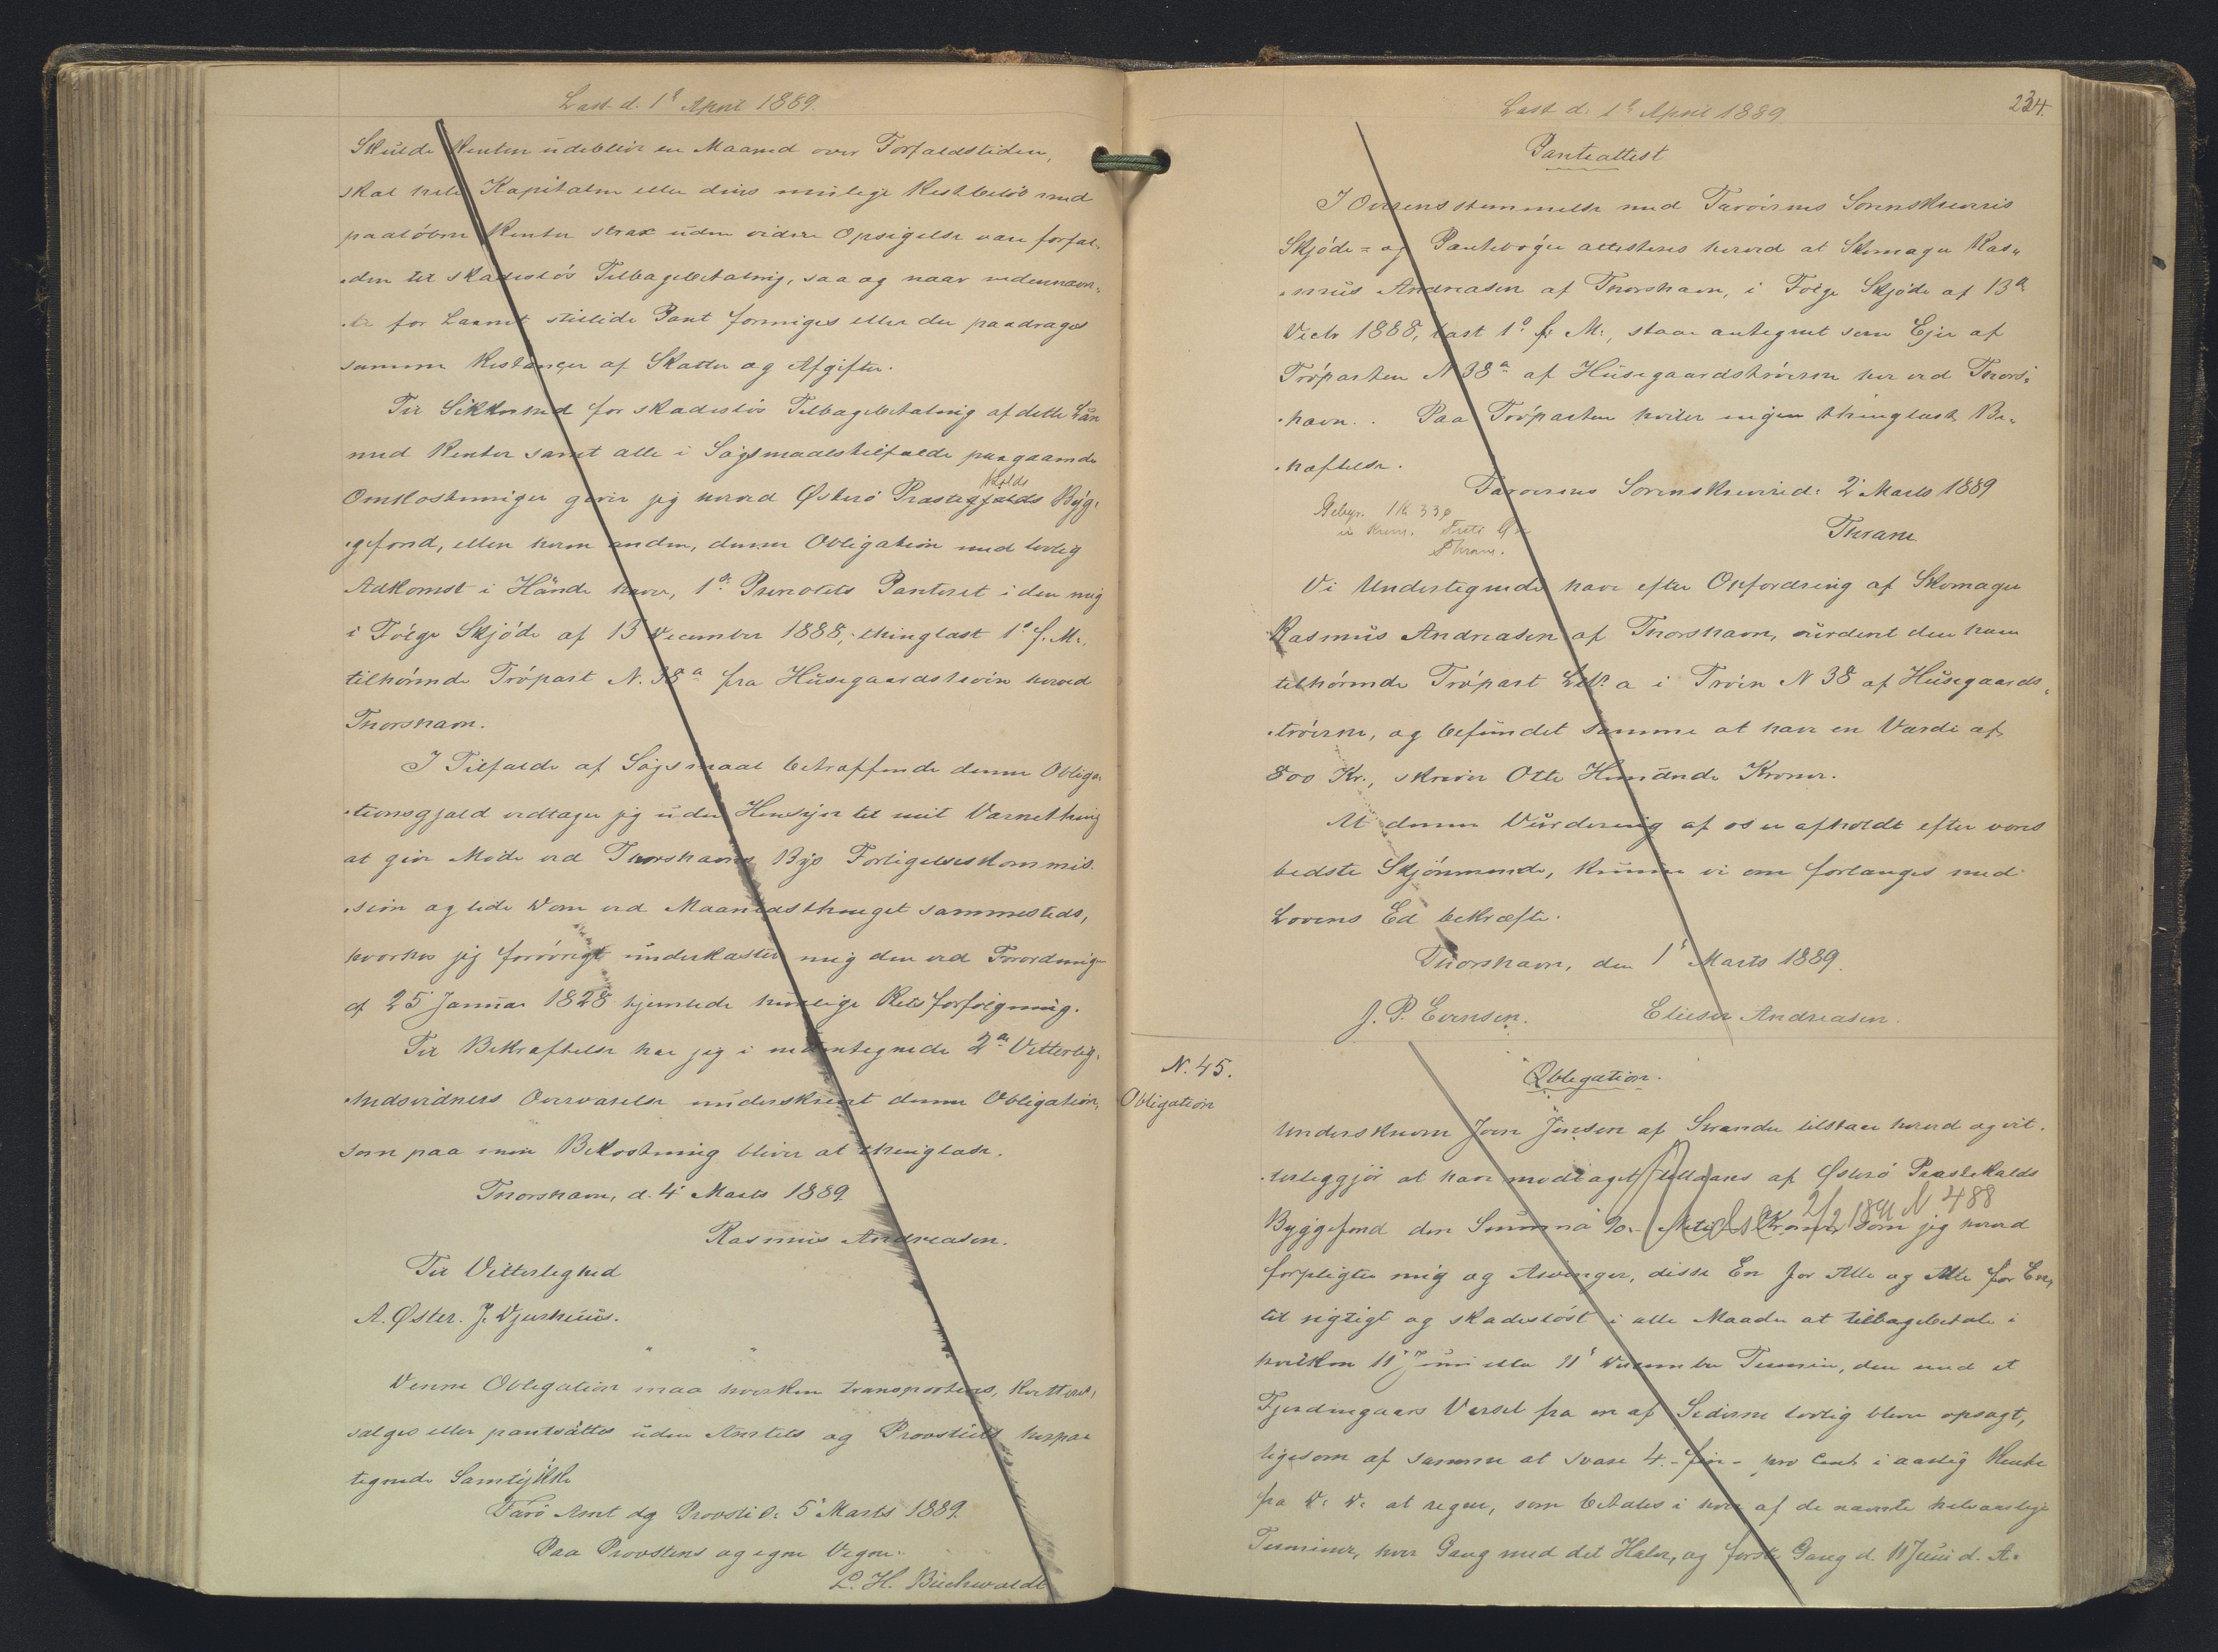 Læst d. 1ᵉ April 1889.
Skulde Renten udebliver en Maaned over Forfaldstiden,
skal hele Kapitalen eller dens mulige Restbeløb med
paaløbne Renter strax uden videre Opsigelse være forfal-
den til skadesløs Tilbagebetaling, saa og naar nedennævn-
te for Laanet stillede Pant forringes eller der paadrages
samme Restancer af Skatter og Afgifter.
Til Sikkerhed for skadesløs Tilbagebetaling af dette Lån
med Renter samt alle i Søgsmaalstilfælde paagaaende
kalds
Omkostninger giver jeg herved Østerø Præstegjælds Byg-
gefond, eller hvem anden, denne Obligation med lovlig
Adkomst i Hænde haver, 1ˢ Prioritets Panteret i den mig
i Følge Skjøde af 13 December 1888, thinglæst 1ᵉ f. M.,
tilhørende Trøpart N. 38ᵃ fra Husegaardstrøen herved
Thorshavn.
I Tilfælde af Søgsmaal betræffende denne Obliga-
tionsgjæld vedtager jeg uden Hensyn til mit Værnething
at give Møde ved Thorshavns Bys Forligelseskommis-
sion og lide Dom ved Maanedsthinget sammesteds,
hvorhos jeg forøvrigt underkaster mig den ved Forordning
af 25 Januar 1828 hjemlede hurtige Retsforfølgning.
Til Bekræftelse har jeg i medentegnede 2ᵈᵉ Vitterlig-
hedsvidners Overværelse underskrevet denne Obligation,
som paa min Bekostning bliver at thinglæse.
Thorshavn, d. 4' Marts 1889
Rasmus Andreasen.
Til Vitterlighed
A. Øster. J. Djurhuus.
Denne Obligation maa hverken transporteres, kvitteres,
sælges eller pantsættes uden Amtets og Provstiets herpaa
tegnede Samtykke
Færø Amt og Provsti d. 5' Marts 1889.
Paa Provstens og egne Vegne.
L. H. Buchwaldt
234.
Læst d. 1ᵉ April 1889
Panteattest
I Overensstemmelse med Færøernes Sorenskriveris
Skjøde- og Pantebøger attesteres herved at Skomager Ras-
mus Andreasen af Thorshavn, i Følge Skjøde af 13ᵈᵉ
Decbr 1888, læst 1ᵉ f. M., staar antegnet som Ejer af
Trøparten N 38ᵃ af Husegaardstrøerne her ved Thors-
havn. Paa Trøparten hviler ingen thinglæst Be-
hæftelse.
Færøernes Sorenskriveri d. 2' Marts 1889
Gebyr. 1 K 33 ø
Thrane
Thrane.
Vi Undertegnede have efter Opfordring af Skomager
Rasmus Andreasen af Thorshavn, vurderet den ham
tilhørende Trøpart Litr. a i Trøen N 38 af Husegaards-
trøerne, og befundet samme at have en Værdi af
800 Kr., skriver Otte Hundrede Kroner.
At denne Vurdering af os er afholdt efter vores
bedste Skjønnende, kunne vi om forlanges med
Lovens Ed bekræfte.
Thorshavn, den 1' Marts 1889.
J. P. Evensen. Elieser Andreasen.
N. 45.
Obligation
Obligation.
Underskreven Joen Jensen af Strender tilstaar herved og vit-
terliggjør at have modtaget tillaans af Østerø Præstekalds
2/2 1891 N 488
Byggefond den Summa 90.- Kroner som jeg herved
forpligter mig og Arvinger, disse En for Alle og Alle for En,
til rigtigt og skadesløst i alle Maader at tilbagebetale i
hvilken 11' Juni eller 11' December Termin, den med et
Fjerdingaars Varsel fra en af Siderne lovlig bliver opsagt,
ligesom af samme at svare 4.- fire - pro Cent i aarlig Rente
fra D. D. at regne, som betales i hver af de nævnte halvaarlige
Terminer, hver Gang med det Halve, og første Gang d. 11 Juni d. A.